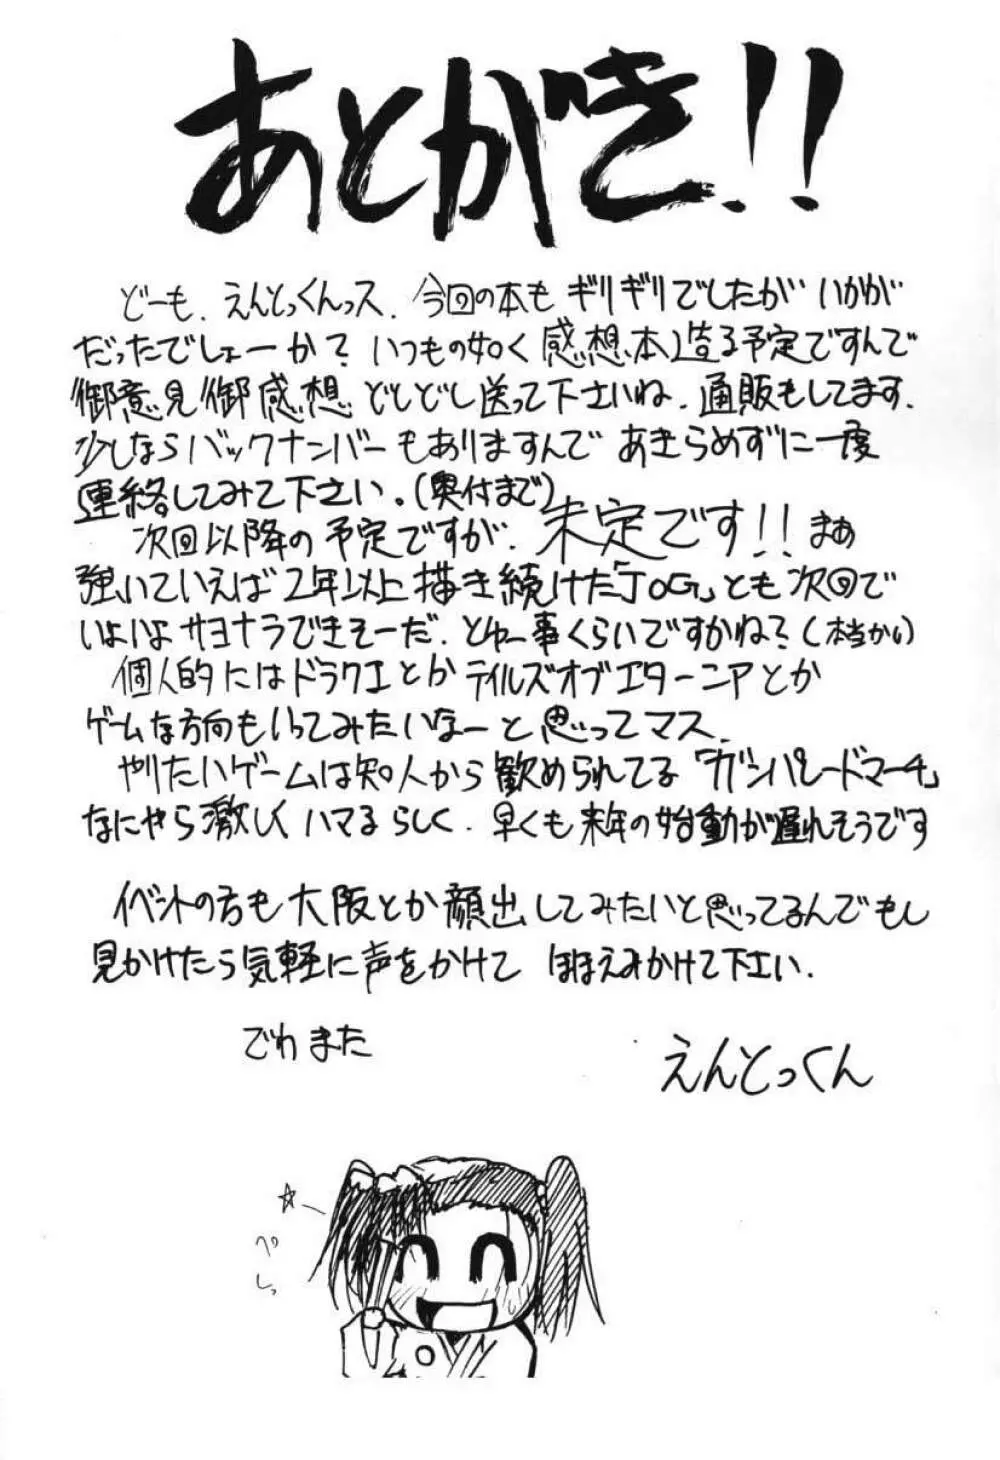 あとがき!!
どーも、えんとっくんっス、今回の本もギリギリでしたがいかが
だったでしょーか?いつもの如く感想本造る予定ですんで
御意見御感想どしどし送って下さいね、通販もしてます、
少しならバックナンバーもありますんであきらめずに一度
連絡してみて下さい。(奥付まで)
次回以降の予定ですが、未定です!!まあ
強いていえば2年以上描き続けた「JOG」とも次回で
いよいよサヨナラできそーだ、とゆー事くらいですかね?(本当かい)
個人的にはドラクエとかテイルズオブエターニアとか
ゲームな方向もいってみたいなーと思ってマス、
やりたいゲームは知人から歓められてる「ガンパレードマーチ」
なにやら激しくハマるらしく、早くも来年の始動が遅れそうです
イベントの方も大阪とか顔出してみたいと思ってるんでもし
見かけたら気軽に声をかけてほほえみかけて下さい、
でわまた
えんとっくん
ペシっ